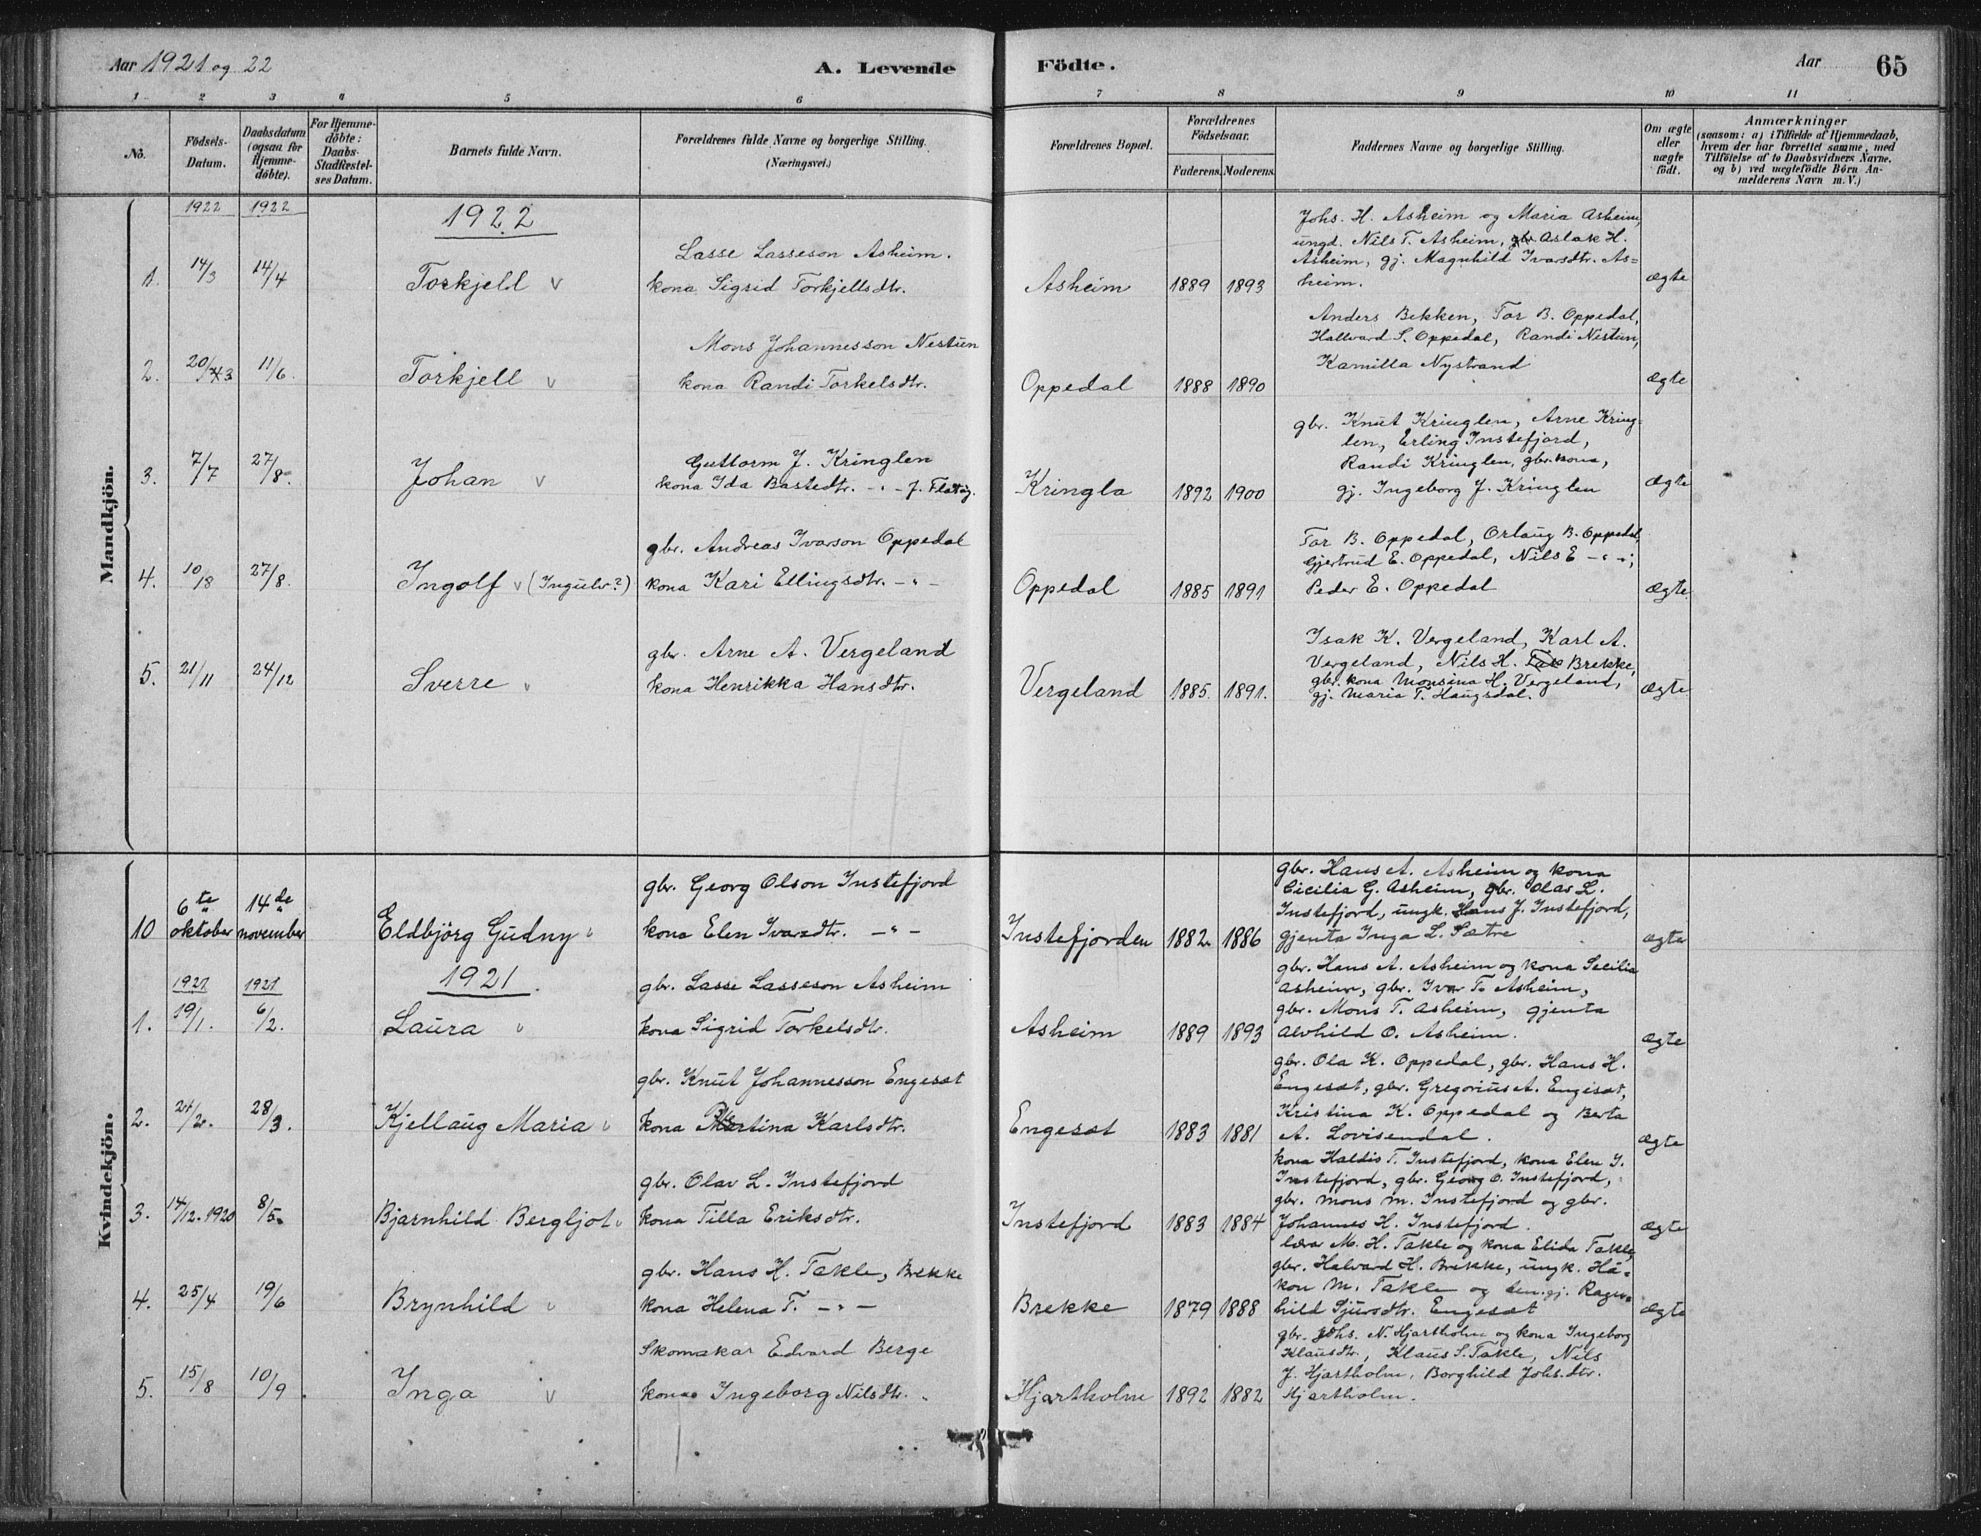 Aar 1921 og 22
A. Levende
Födte.
Aar
65
1 2 3 4 5 6 7 8 9 10 11
No.
Födsels-
Datum.
Daabsdatum
(ogsaa for
Hjemme-
döbte).
For Hjemme-
döbte:
Daabs-
Stadfæstel-
ses Datum.
Barnets fulde Navn.
Forældrenes fulde Navne og borgerlige Stilling.
(Næringsvei.)
Forældrenes Bopæl.
Forældrenes
Födselsaar.
Faderens. Moderens.
Faddernes Navne og borgerlige Stilling.
Om ægte
eller
uægte
födt.
Anmærkninger
(saasom: a) i Tilfælde af Hjemmedaab,
hvem der har forrettet samme, med
Tilföielse af to Daabsvidners Navne,
og b) ved uægtefödte Börn An-
melderens Navn m. V.)
Mandkjön.
1922 1922
1922
1. 14/3 14/4 Torkjell v
Lasse Lasseson Asheim.
kona Sigrid Torkjellsdtr.
Asheim 1889 1893
Johs. H. Asheim og Maria Asheim,
ungd. Nils T. Asheim, gbr. Aslak H.
Asheim, gj. Magnhild Ivarsdtr. As-
heim.
ægte
2. 20/3 11/6. Torkjell v
Mons Johannesson Nestun
kona Randi Torkelsdtr.
Oppedal 1888 1890
Anders Bekken, Tor B. Oppedal,
Hallvard S. Oppedal, Randi Nestun,
Kamilla Nystrand
ægte
3. 7/7 27/8. Johan v
Guttorm J. Kringlen
kona Ida Bastedtr. - " - f. Flatöy.
Kringla 1892 1900
gbr. Knut Kringlen, Arne Kring-
len, Erling Instefjord,
Randi Kringlen, gbr. kona,
gj. Ingeborg J. Kringlen
ægte
4. 10/8 27/8. Ingolf v (Ingulv?)
gbr. Andreas Ivarson Oppedal
kona Kari Ellingsdtr. - " -
Oppedal 1885 1891
Tor B. Oppedal, Orlaug B. Oppedal,
Gjertrud E. Oppedal, Nils E - " -;
Peder E. Oppedal
ægte.
5. 21/11 24/12 Sverre v
gbr. Arne A. Vergeland
kona Henrikka Hansdtr.
Vergeland 1885. 1891.
Isak K. Vergeland, Karl A.
Vergeland, Nils H. Brekke,
gbr. kona Monsina H. Vergeland,
gj. Maria T. Haugsdal.
ægte
Kvindekjön.
10 6te oktober 14de november Eldbjörg Gudny v
gbr. Georg Olson Instefjord
kona Elen Ivarsdtr. - " -
Instefjorden 1882 1886
gbr. Hans A. Asheim og kona
Cicilia G. Asheim, gbr. Olav L.
Instefjord, ungk. Hans J. Instefjord,
gjenta Inga L. Sætre
ægte
1921 1921
1921
1. 19/1. 6/2. Laura v
gbr. Lasse Lasseson Asheim
kona Sigrid Torkelsdtr.
Asheim 1889 1893
gbr. Hans A. Asheim og kona Secilia
Asheim, gbr. Ivar T. Asheim,
gbr. Mons T. Asheim, gjenta
Alvhild O. Asheim.
ægte
2. 24/2. 28/3. Kjellaug Maria v
gbr. Knut Johannesson Engesæt
kona Martina Karlsdtr.
Engesæt 1883 1881
gbr. Ola K. Oppedal, gbr. Hans H.
Engesæt, gbr. Gregorius A. Engesæt,
Kristina K. Oppedal og Berta
A. Lovisendal.
ægte
3. 14/12. 1920 8/5. Bjarnhild Bergljot v
gbr. Olav L. Instefjord
kona Tilla Eriksdtr.
Instefjord 1883 1884
kona Haldis T. Instefjord, kona Elen I.
Instefjord, gbr. Georg O. Instefjord,
gbr. Mons M. Instefjord og gbr.
Johannes H. Instefjord.
ægte
4. 25/4 19/6 Brynhild v
gbr. Hans H. Takle, Brekke
kona Helena T. - " -
Brekke 1879 1888
lærar M. H. Takle og kona Elida Takle,
gbr. Halvard H. Brekke, ungk. Hå-
kon M. Takle og gj. Ragn-
hild Sjursdtr. Engesæt
ægte
5. 15/8 10/9. Inga v
Skomakar Edvard Berge
kona Ingeborg Nilsdtr.
Hjartholm 1892 1882
gbr. Johs. N. Hjartholm og kona Ingeborg
Klausdtr, Klaus S. Takle, Nils
J. Hjartholm, Borghild Johsdtr.
Hjartholm.